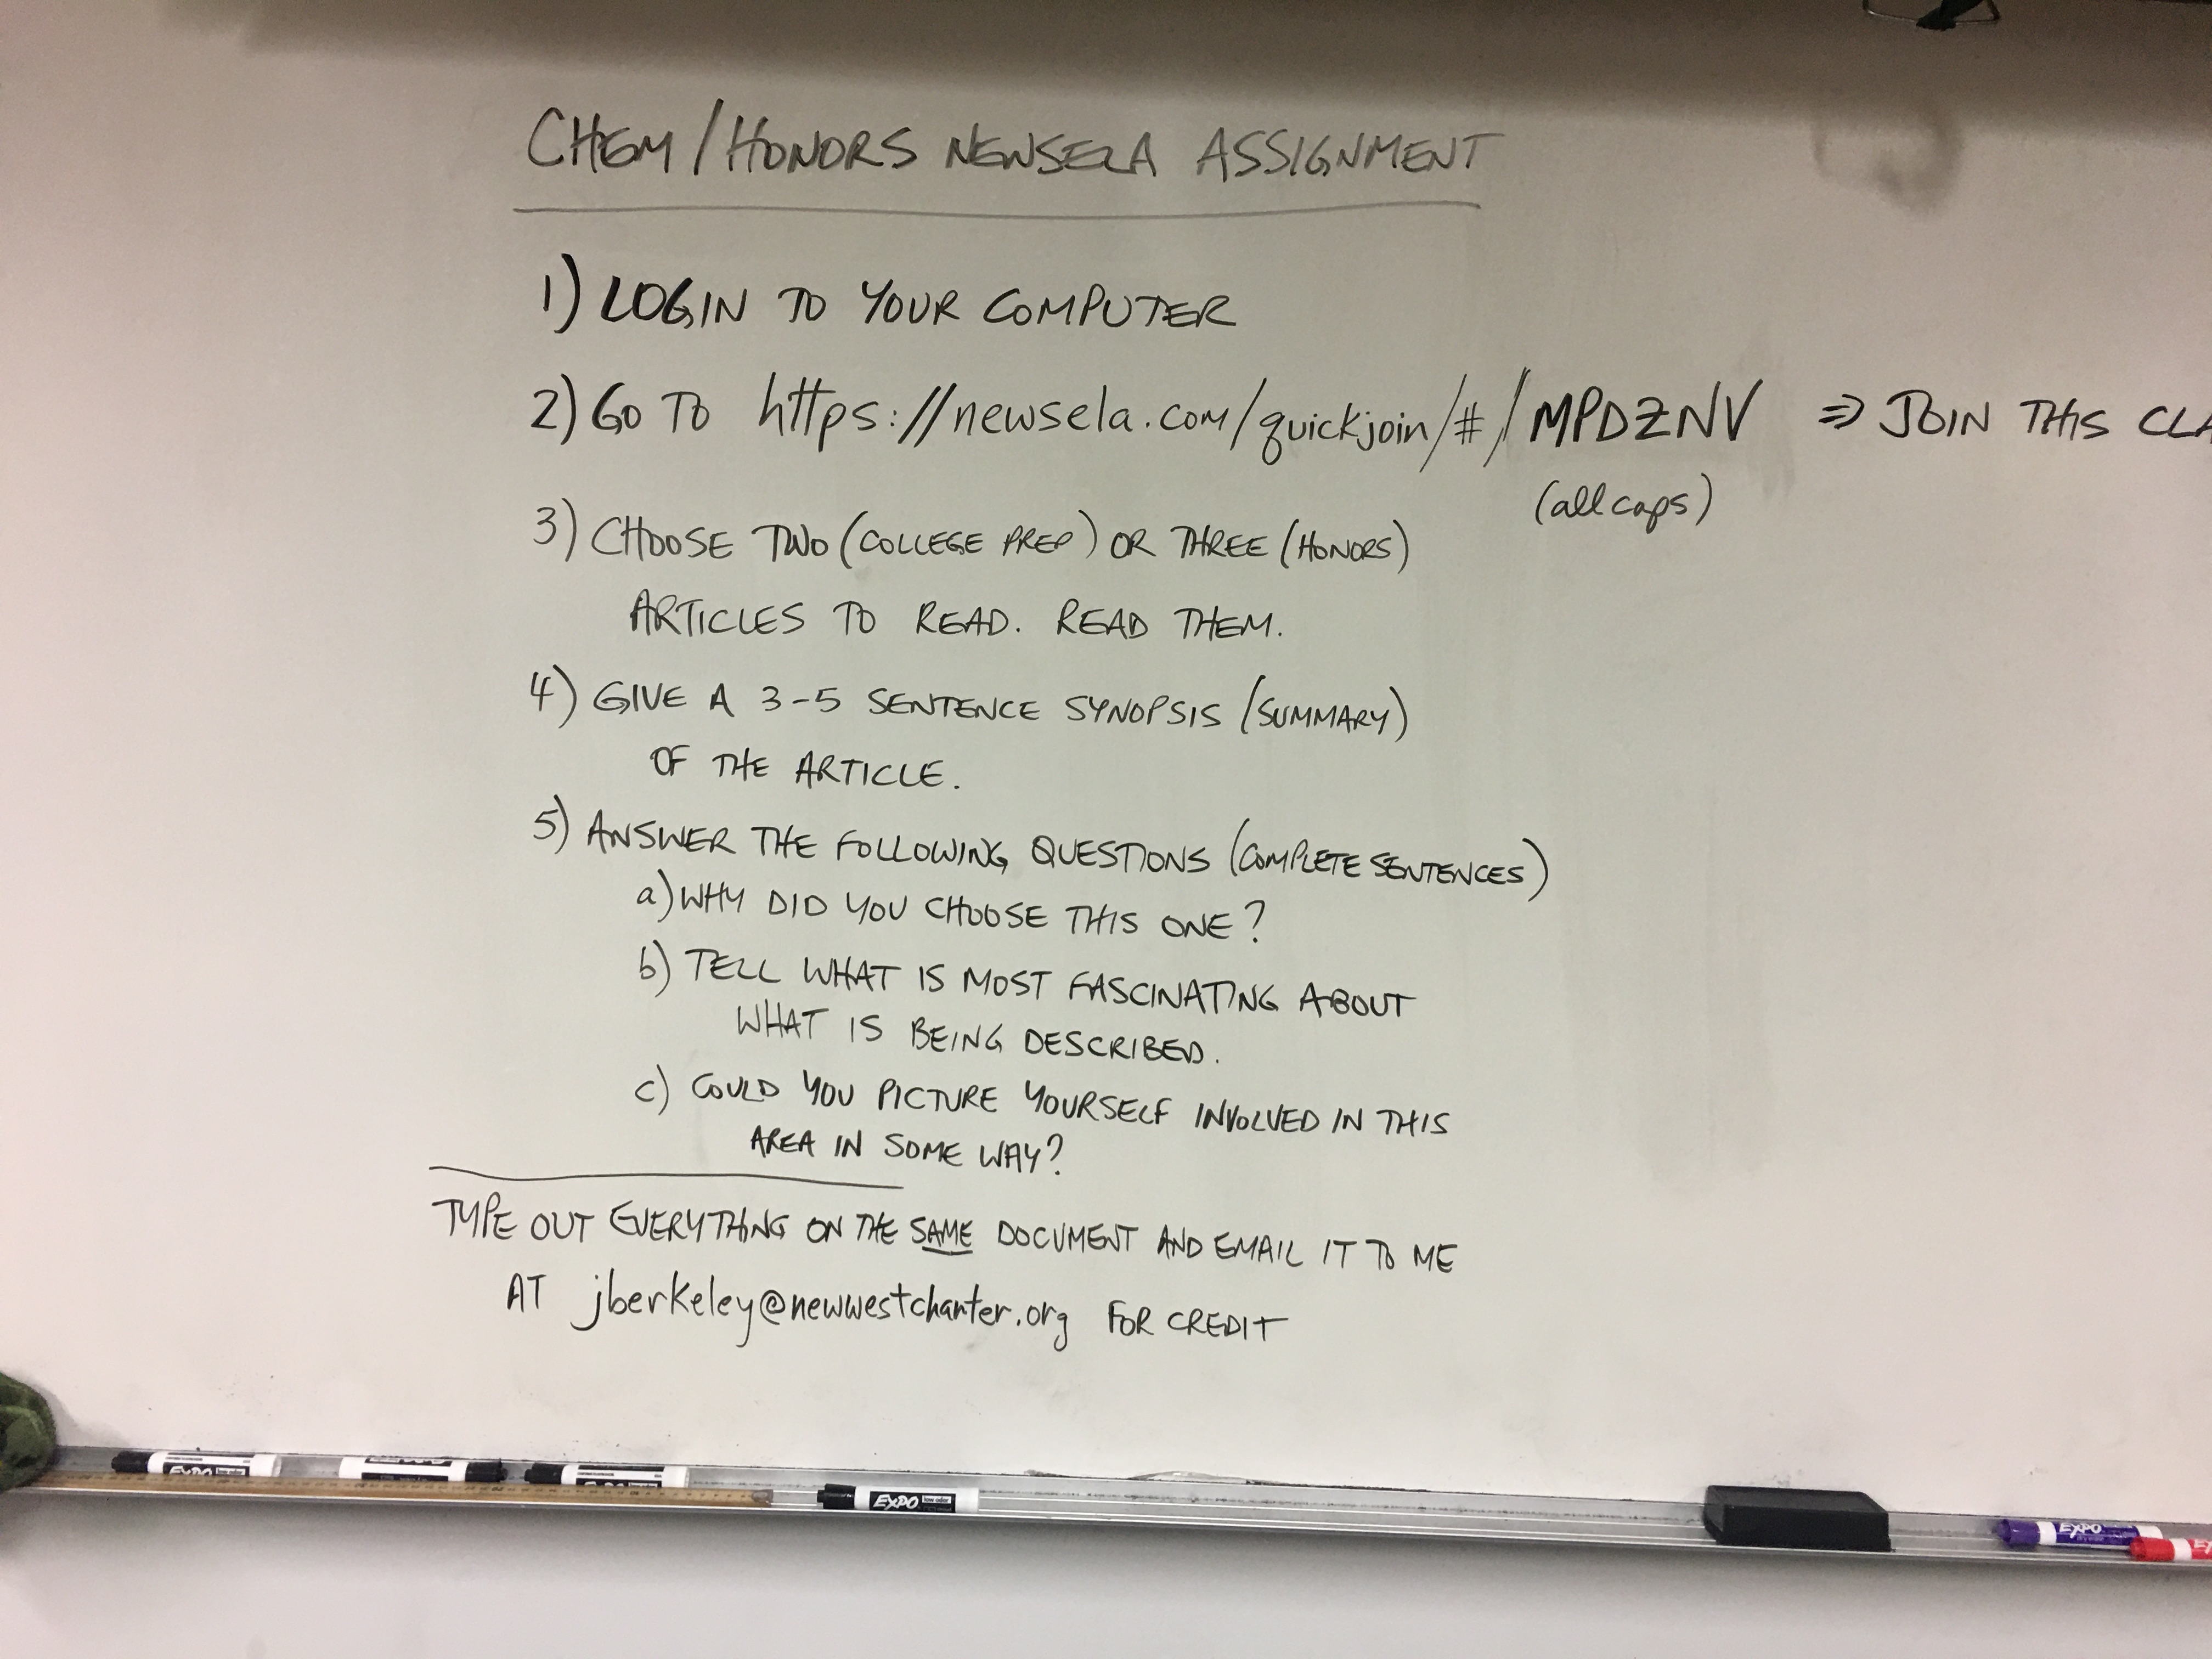 CHEM/HONORS NEWSELA ASSIGNMENT
1) LOGIN TO YOUR COMPUTER
2) GO TO https://newsela.com/quickjoin/#/MPDZNV ⇒ JOIN THIS CLA
(all caps)
3) CHOOSE TWO (COLLEGE PREP) OR THREE (HONORS)
ARTICLES TO READ. READ THEM.
4) GIVE A 3-5 SENTENCE SYNOPSIS (SUMMARY)
OF THE ARTICLE.
5) ANSWER THE FOLLOWING QUESTIONS (COMPLETE SENTENCES)
a) WHY DID YOU CHOOSE THIS ONE?
b) TELL WHAT IS MOST FASCINATING ABOUT
WHAT IS BEING DESCRIBED.
c) COULD YOU PICTURE YOURSELF INVOLVED IN THIS
AREA IN SOME WAY?
TYPE OUT EVERYTHING ON THE SAME DOCUMENT AND EMAIL IT TO ME
AT jberkeley@newwestcharter.org FOR CREDIT
EXPO
EXPO
EXPO low odor
EXPO